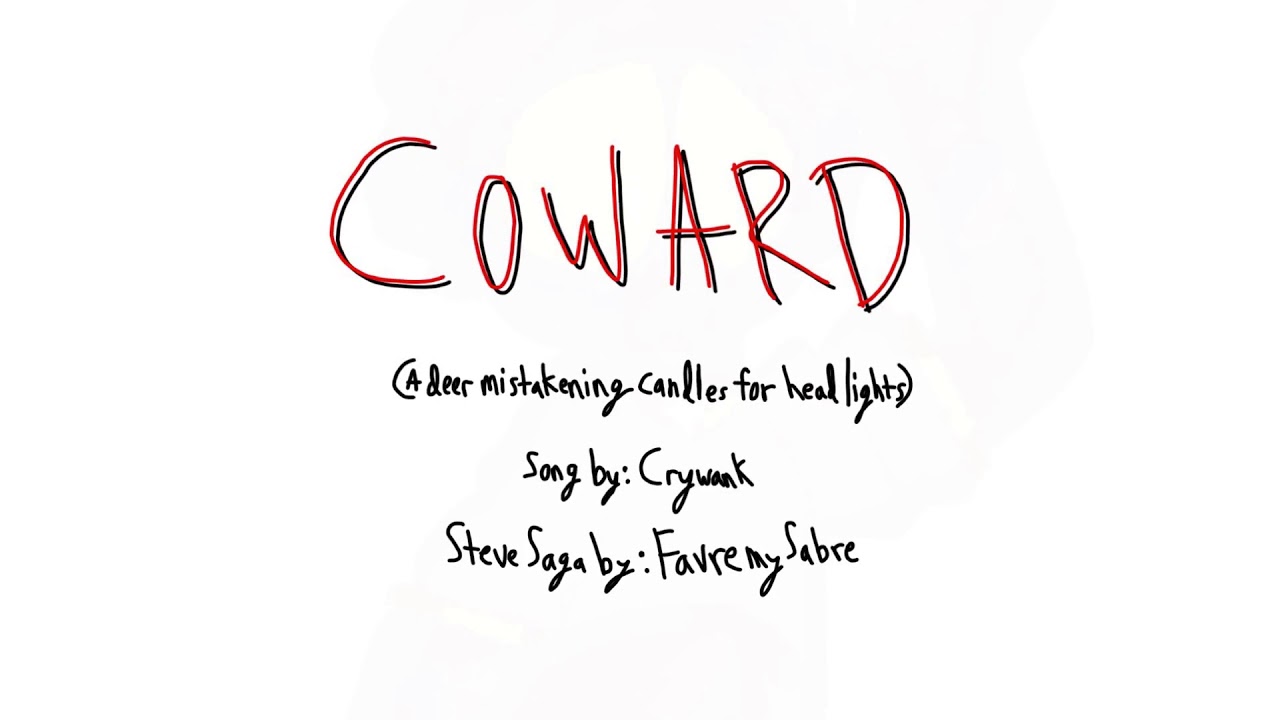 COWARD
(A deer mistakening candles for head lights)
Song by: Crywank
Steve Saga by: Favremy Sabre